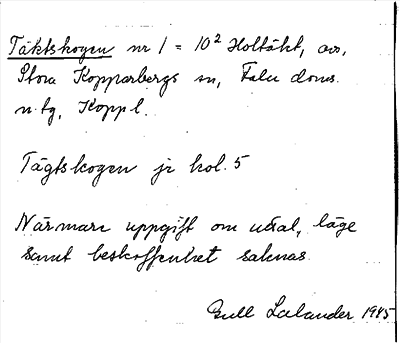 Täktskogen nr 1 = 10² Holtäkt, avs.
Stora Kopparbergs sn, Falu doms.
n. tg, Koppl.
Tägtskogen jr kol. 5
Närmare uppgift om uttal, läge
samt beskaffenhet saknas
Gull Lalander 1945